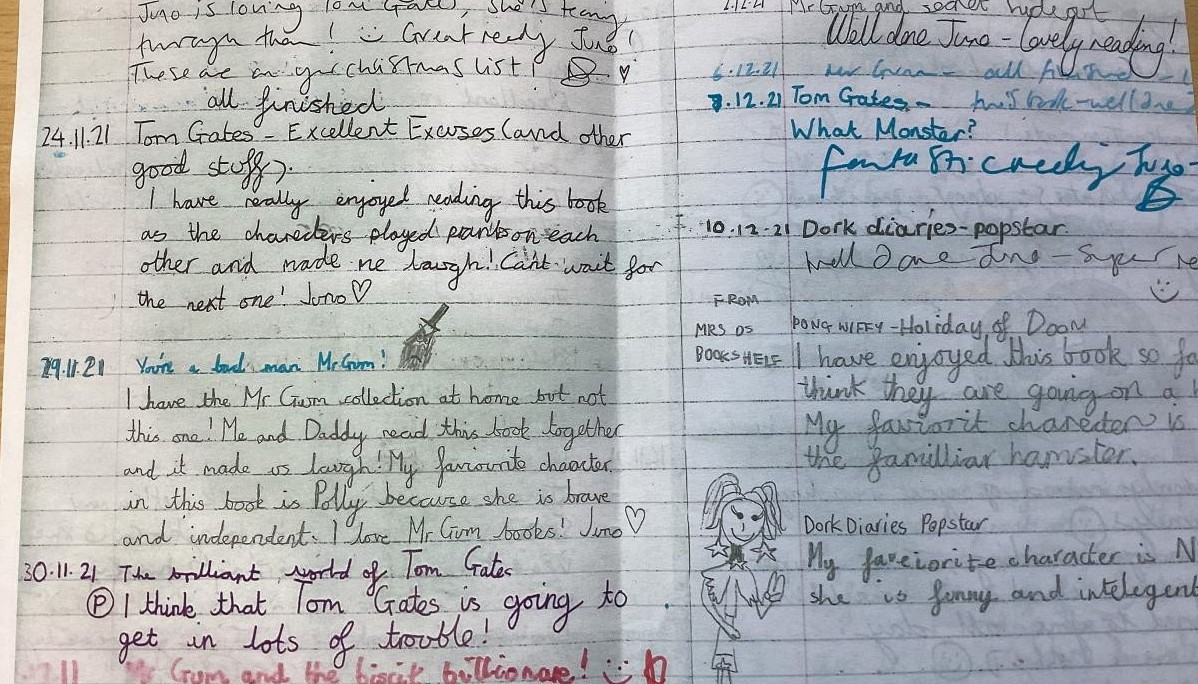 Juno is loving Tom Gates, she's
through than! Great Juno!
These are on Christmas list!
all finished
24.11.21 Tom Gates - Excellent Excuses (and other
good stuff).
I have really enjoyed reading this book
as the characters played pranks on each
other and made me laugh! Can't wait for
the next one! Juno ♡
29.11.21 You're a bad man Mr Gum!
I have the Mr Gum collection at home but not
this one! Me and Daddy read this book together
and it made us laugh! My favourite character
in this book is Polly because she is brave
and independent. I love Mr Gum books! Juno ♡
30.11.21 The brilliant world of Tom Gates
Ⓟ I think that Tom Gates is going to
get in lots of trouble!
Mr Gum and the biscit billionare!
Mr Gum and secret
Well done Juno - lovely reading!
6.12.21 all
8.12.21 Tom Gates - book - well done
What Monster?
fantastic Juno -
10.12.21 Dork diaries - popstar
Well done Juno - Super
FROM
MRS DS
BOOKSHELF
PONG WIFFY - Holiday of Doom
I have enjoyed this book so
think they are going on a
My favriorit charecter is
the familliar hamster.
Dork Diaries Popstar
My faveiorite character is N
she is funny and intelegent